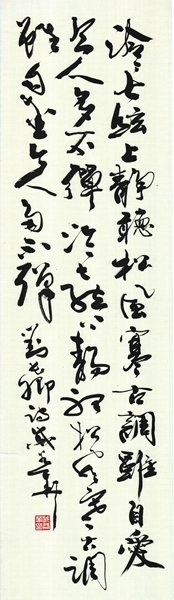 泠々七絃上靜聽松風寒古調雖自愛
今人多不彈泠々七絃上靜聽松風寒古調
雖自愛今人多不彈劉長卿詩